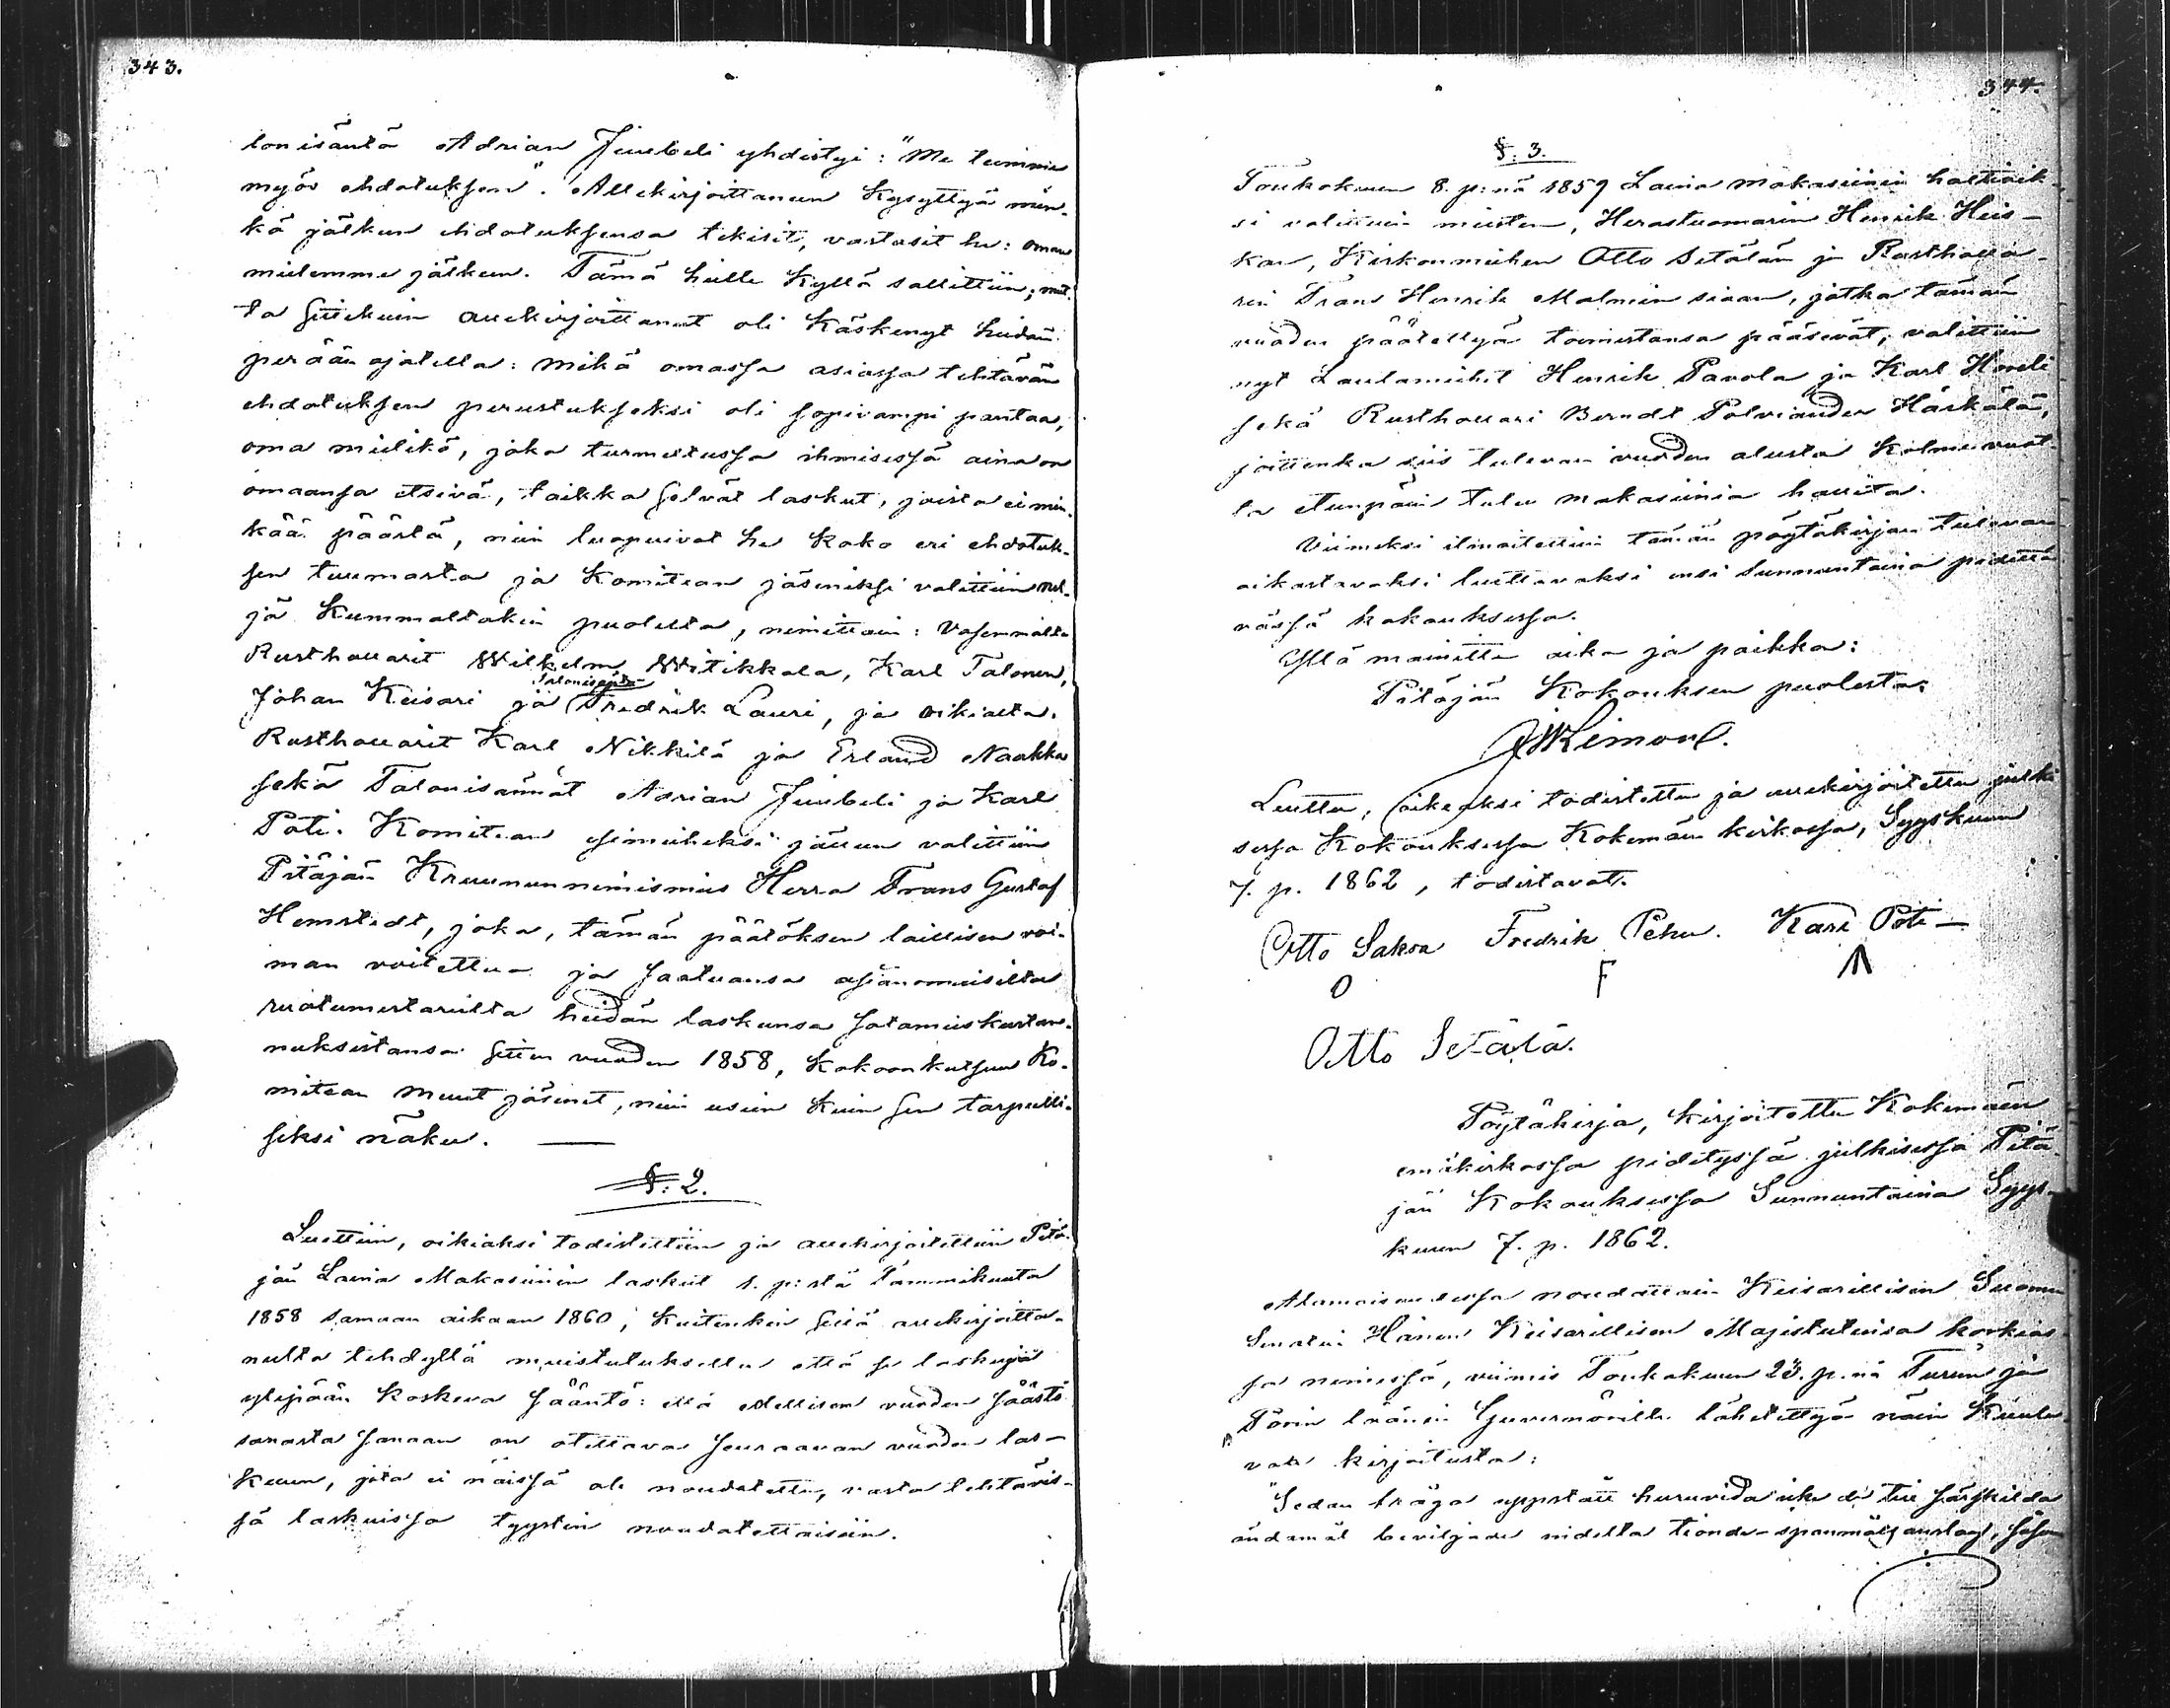 343.
lonisäntä Adrian Juubeli yhdistyi: "Me teimme
myös ehdotuksen". Allekirjoittanun Kysyttyä min-
kä jälkeen ehdotuksensa tekisit, vastasit he: oman
mielemme jälkeen. Tämä heille Kyllä sallittiin; mut-
ta sittekuin allekirjoittanut oli Käskenyt heidän
perään ajatella: mikä omassa asiassa tehtävän
ehdotuksen perustukseksi oli sopivampi pantaa,
oma mielikö, joka turmeltussa ihmisessä aina on
omaansa etsivä, taikka selvät laskut, joista ei min-
kää päästä, niin luopuivat he koko eri ehdotuk-
sen tuumasta ja Komitean jäseniksi valittiin nel-
jä Kummaltakin puolelta, nimittäin: Vasemmalta
Rusthollarit Wilhelm Witikkala, Karl Talonen,
Talonisäntä
Johan Keisari ja Fredrik Lauri, ja oikialta.
Rusthollarit Karl Nikkilä ja Erland Naakka
sekä Talonisännät Adrian Juubeli ja Karl
Poti. Komitean esimieheksi jällen valittiin
Pitäjän Kruununnimismies Herra Frans Gustaf
Hemstedt, joka, tämän päätöksen laillisen voi-
man voitettua ja saatuansa asianomaisilta
ruotumestareilta heidän laskunsa sotamieskustan-
nuksistansa sitten vuoden 1858, Kokoonkutsuu Ko-
mitean muut jäsenet, niin usein Kuin sen tarpeelli-
seksi näkee.
§: 2.
Luettiin, oikiaksi todistettiin ja allekirjoitettiin Pitä-
jän Laina Makasiinin laskut 1. p:stä Tammikuuta
1858 samaan aikaan 1860; Kuitenkin sillä allekirjoitta-
nulta tehdyllä muistutuksella että se laskuja
ylipään koskeva sääntö: että edellisen vuoden säästö
sanasta sanaan on otettava seuraavan vuoden las-
kuun, jota ei näissä ole noudatettu, vasta tehtävis-
sä laskuissa tyystin noudatettaisiin.
344.
§: 3.
Toukokuun 8. p:nä 1859 Laina makasiinin haltioik-
si valittuin miesten, Herastuomarin Henrik Heis-
kan, Kirkonmiehen Otto Setälän ja Rusthalla-
rin Frans Henrik Malmin siaan, jotka tämän
vuoden päätettyä toimestansa pääsevät, valittiin
nyt Lautamiehet Henrik Pavola ja Karl Hoveli
sekä Rusthollari Berndt Polviander Härkälä,
joittenka siis tulevan vuoden alusta Kolme vuot-
ta etuupäin tulee makasiinia hallita.
Viimeksi ilmoitettiin tämän pöytäkirjan tulevan
oikastavaksi luettavaksi ensi Sunnuntaina pidettä-
vässä kokouksessa.
Yllä mainittu aika ja paikka:
Pitäjän Kokouksen puolesta:
Luettu, oikeaksi todistettu ja allekirjoitettu julki-
sessa Kokouksessa Kokemäen kirkossa, Syyskuun
7. p. 1862, todistavat.
Otto Saksa Fredrik Pehu. Karl Poti-
O F
Otto Setälä.
Pöytäkirja, kirjoitettu Kokemäen
emäkirkossa pidetyssä julkisessa Pitä-
jän Kokouksessa Sunnuntaina Syys-
kuun 7. p. 1862.
Alamaisuudessa noudattain Keisarillisen Suomen
Senatin Hänen Keisarillisen Majesteetinsa korkias-
sa nimessä, viimis Toukokuun 23. p.nä Turun ja
Porin läänin Guvernörille lähetettyä näin Kuulu-
vata kirjoitusta:
"Sedan fråga uppstått huruvida icke de till särskilda
ändamål beviljade nidelta tionde-spanmåls anslag, såsom